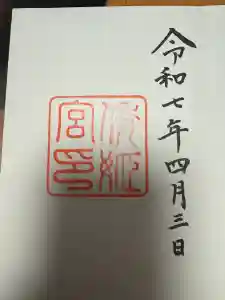 令和七年四月三日
宮印